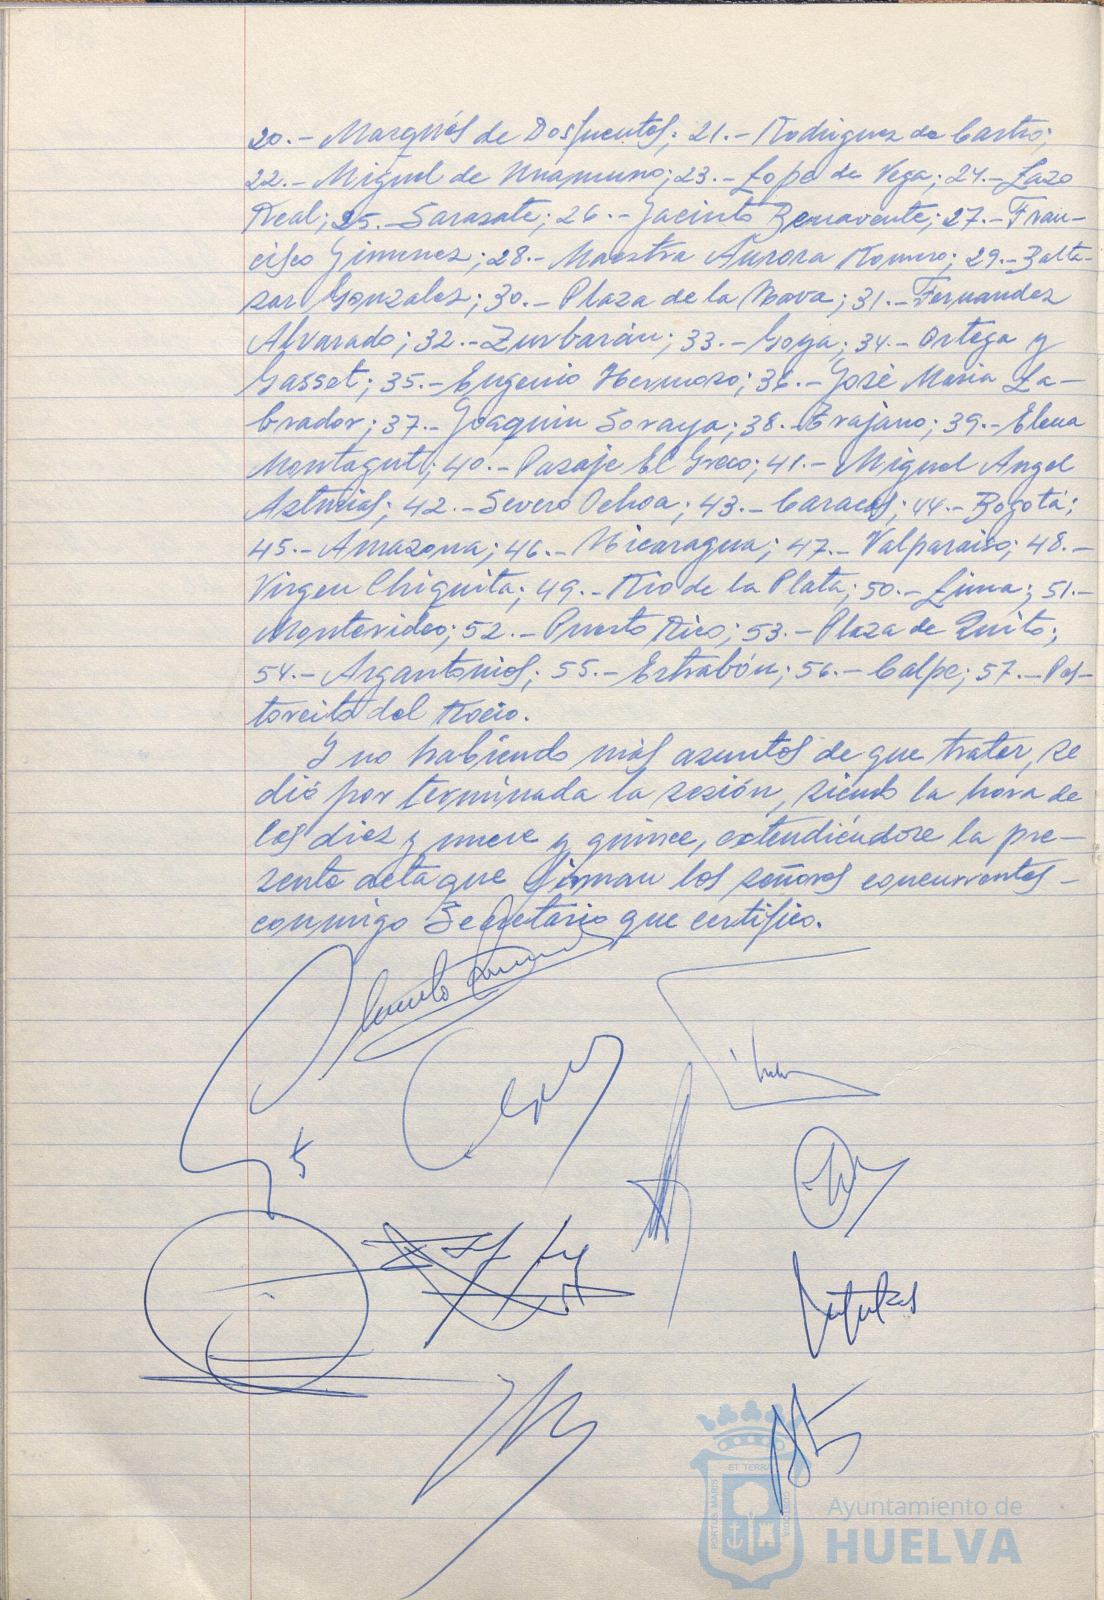 20.- Marqués de Dosfuentes; 21.- Rodriguez de Castro;
22.- Miguel de Unamuno; 23.- Lope de Vega; 24.- Lazo
Real; 25.- Sarasate; 26.- Jacinto Benavente; 27.- Fran-
cisco Gimenez; 28.- Maestra Aurora Romero; 29.- Balta-
sar Gonzalez; 30.- Plaza de la Nava; 31.- Fernandez
Alvarado; 32.- Zurbarán; 33.- Goya; 34.- Ortega y
Gasset; 35.- Eugenio Hermoso; 36.- José Maria La-
brador; 37.- Joaquin Soraya; 38.- Trajano; 39.- Elena
Montagut; 40.- Pasaje El Greco; 41.- Miguel Angel
Asturias; 42.- Severo Ochoa; 43.- Caracas; 44.- Bogotá;
45.- Amazona; 46.- Nicaragua; 47.- Valparaiso; 48.-
Virgen Chiquita; 49.- Rio de la Plata; 50.- Lima; 51.-
Montevideo; 52.- Puerto Rico; 53.- Plaza de Quito;
54.- Argantonios; 55.- Estrabón; 56.- Calpe; 57.- Pas-
torcito del Rocio.
Y no habiendo más asuntos de que tratar, se
dió por terminada la sesión, siendo la hora de
las diez y nueve y quince, extendiéndose la pre-
sente acta que firman los señores concurrentes -
conmigo Secretario que certifico.
PORTUS MARIS ET TERRAE CUSTODIA
Ayuntamiento de
HUELVA